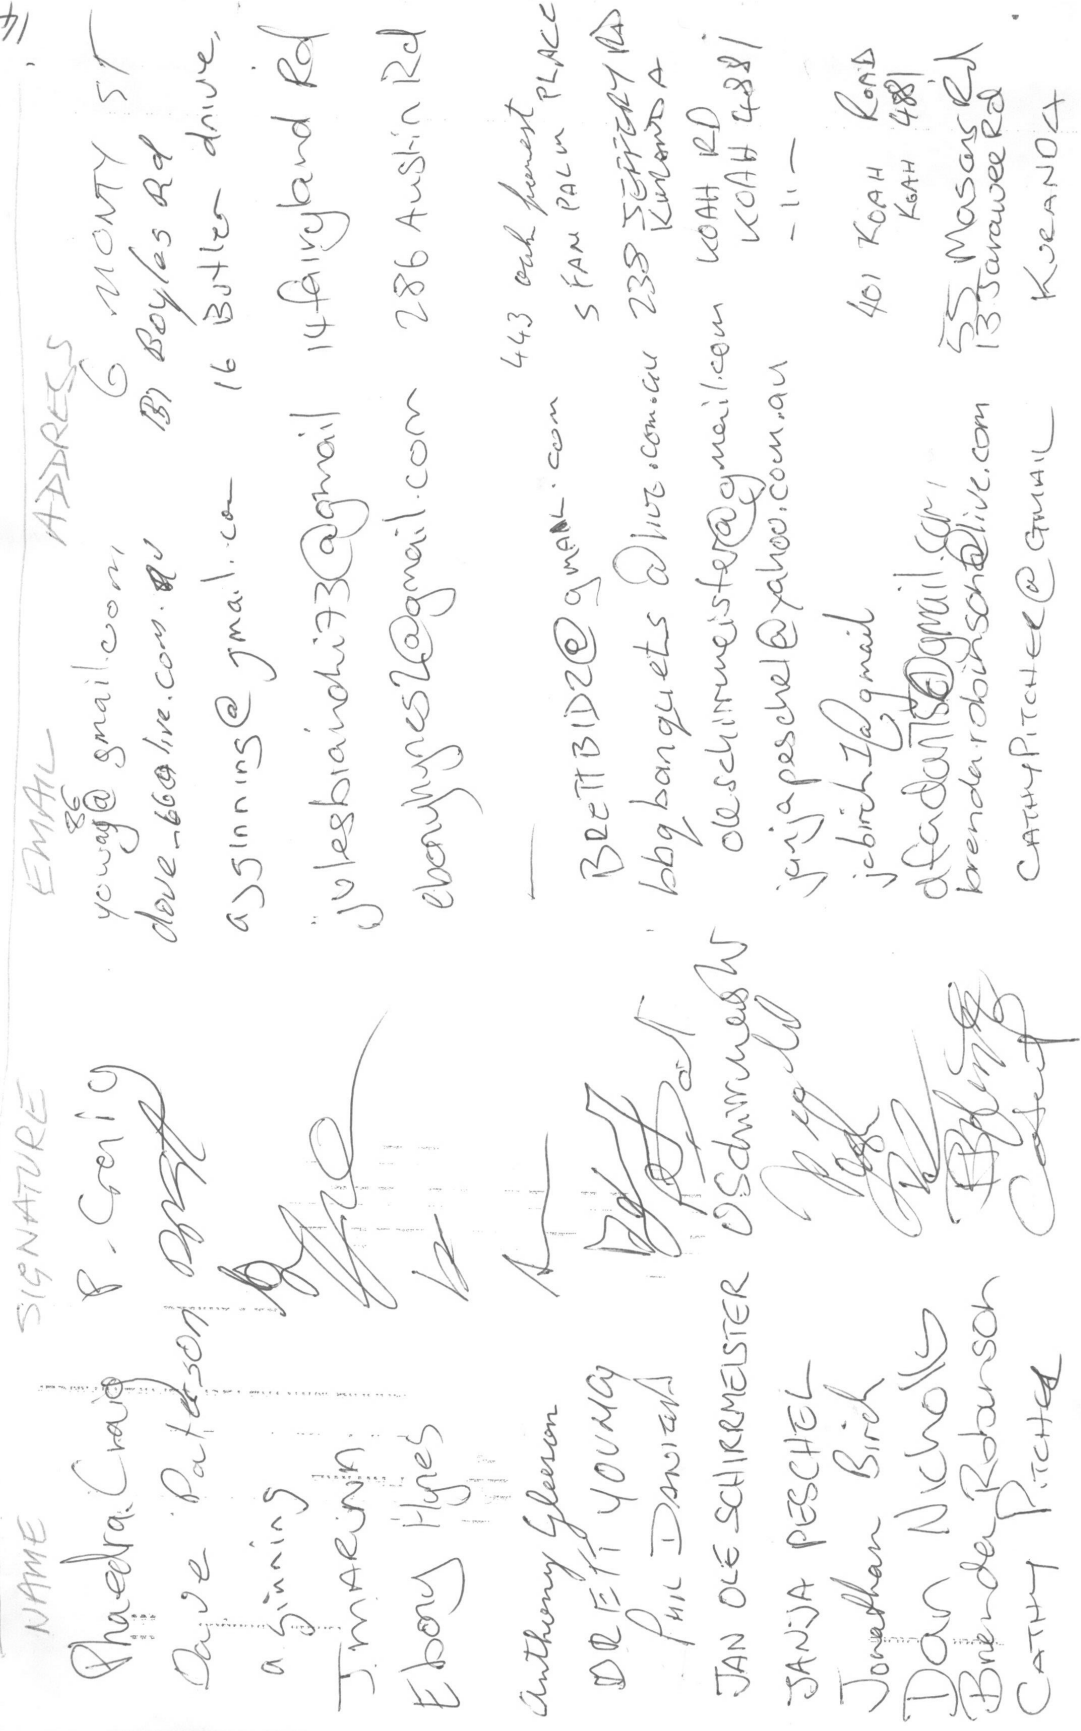 14
NAME SIGNATURE EMAIL ADDRESS
Phaedra Craig P. Craig yoway86@gmail.com 6 MONTY ST
Dave Paterson dove_66@live.com.au Boyles Rd
a ginning agginning@gmail.com 16 Butler drive,
J. MARINA julesbianchi73@gmail 14 fairyland Rd
Ebony Hynes ebonyhynes2@gmail.com 286 Austin Rd
Anthony Gleeson — 443 oak forest
BRETT YOUNG BRETTBIDZ@gmail.com 5 FAN PALM PLACE
PHIL DANIELS bbqbanquets@live.com.au 238 JEFFERY RD KURANDA
JAN OLE SCHIRRMEISTER OSchirrmeister oleschirrmeister@gmail.com KOAH RD KOAH 4881
JANJA PESCHEL janjapeschel@yahoo.com.au -11-
Jonathan Birch jcbirch1@gmail 401 KOAH ROAD KOAH 4881
Dan Nicholls 55 Masons Rd
Brenda Robinson brendarobinson@live.com 13 Jarawee Rd
CATHY PITCHER CATHYPITCHER@GMAIL KURANDA